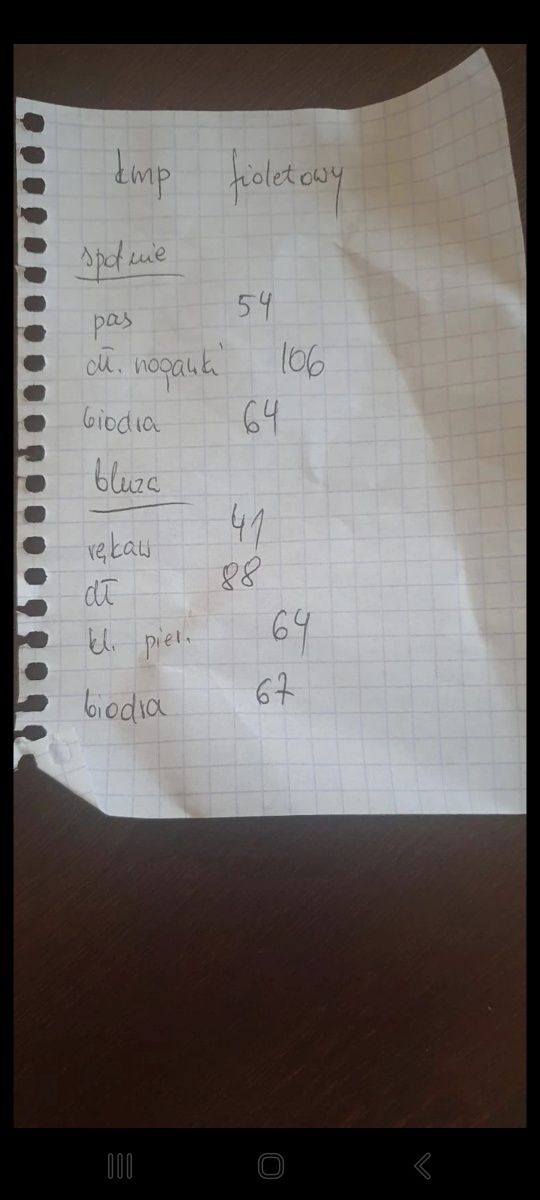 kmp fioletowy
spodnie
pas 54
dł. nogawki 106
biodra 64
bluza
rękaw 41
dł 88
kl. pier. 64
biodra 67